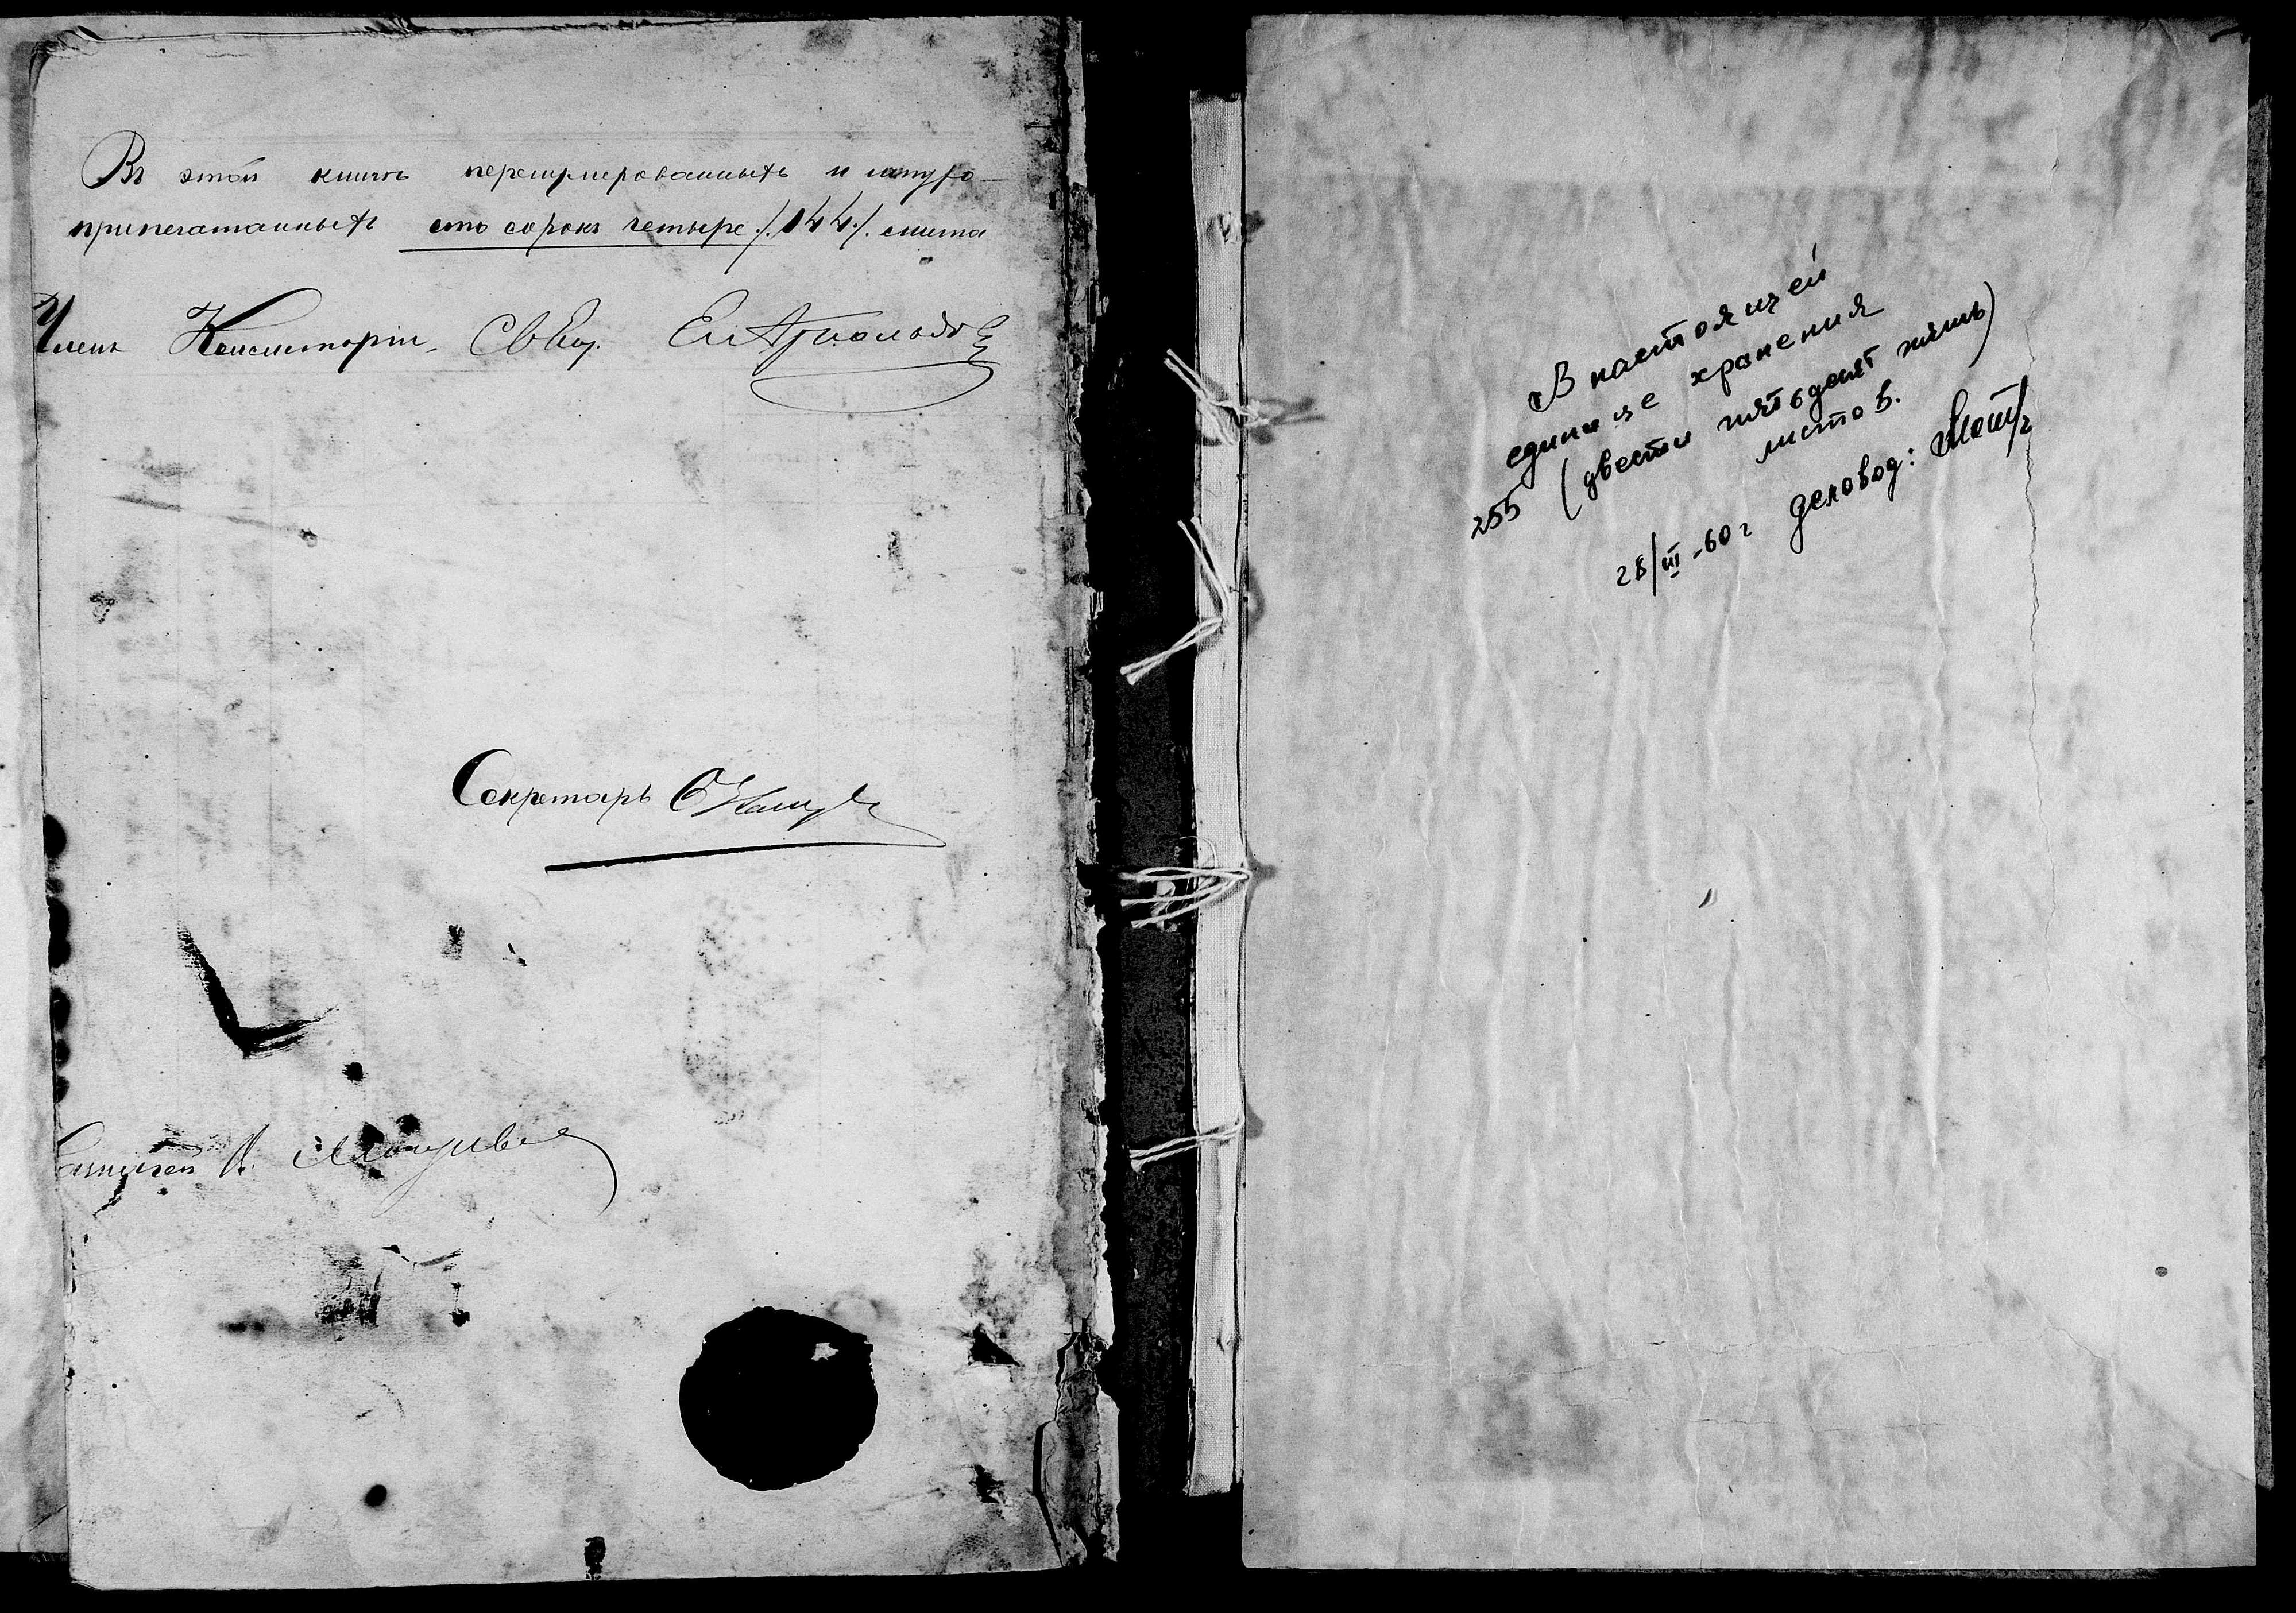 Въ этой книгѣ перешнурованныхъ и шнуро-
припечатанныхъ сто сорокъ четыре /.144./. листа
Членъ Консисторіи, Свящ.
Секретарь
В настоящей
единице хранения
255 (двести пятьдесят пять)
листов.
28/III-60 г деловод: